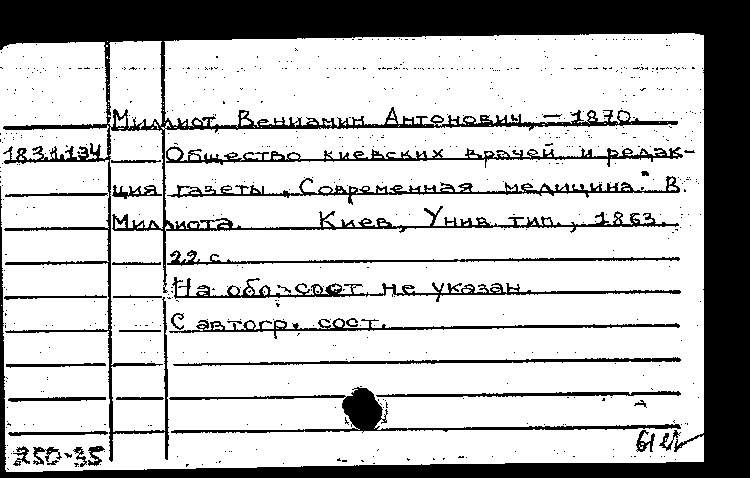 Миллиот, Вениамин Антонович, – 1870.
183.1.194 Общество киевских врачей и редак-
ция газеты „Современная медицина." В.
Миллиота. Киев, Унив. тип., 1863.
22 с.
На обо. сост. не указан.
С автогр. сост.
250-35